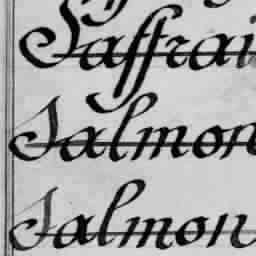 Saffrai
Salmon
Salmon